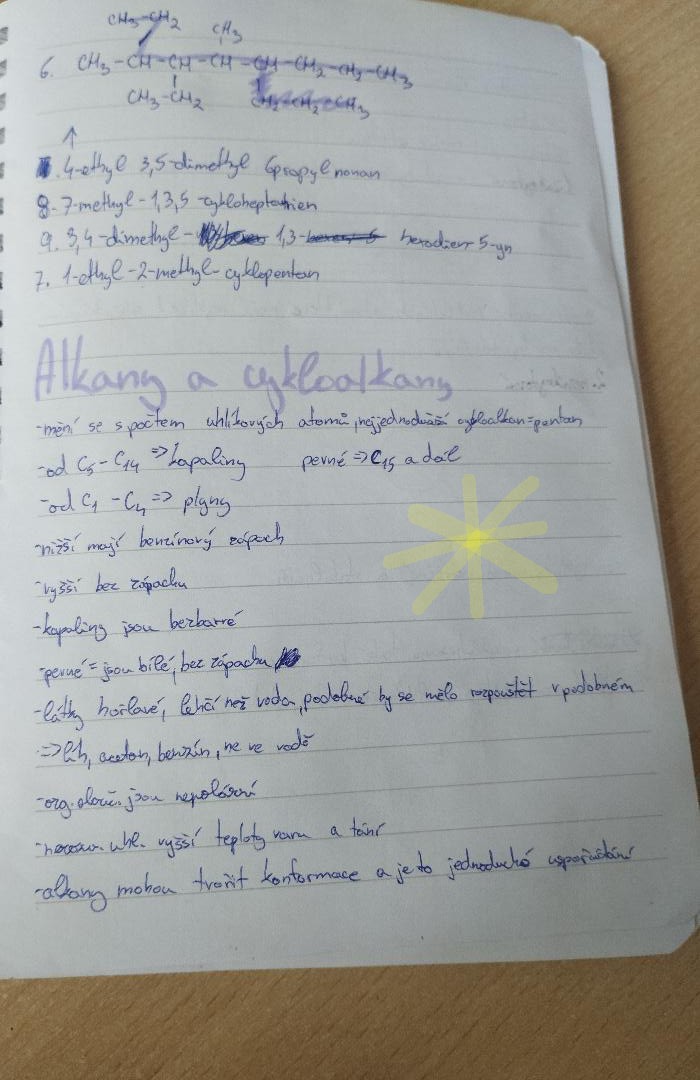 CH₃-CH₂
CH₃
6. CH₃-CH-CH-CH-CH-CH₂-CH₂-CH₃
CH₃-CH₂ CH₂-CH₂-CH₃
↑
. 4-ethyl 3,5-dimethyl 6propyl nonan
8. 7-methyl-1,3,5-cykloheptatrien
9. 3,4-dimethyl- 1,3- hexadien 5-yn
7. 1-ethyl-2-methyl-cyklopentan
Alkany a cykloalkany
-mění se s počtem uhlíkových atomů, nejjednodušší cykloalkan=pentan
-od C₅-C₁₄ => kapaliny pevné => C₁₅ a dál
-od C₁-C₄ => plyny
-nižší mají benzínový zápach
-vyšší bez zápachu
-kapaliny jsou bezbarvé
-pevné = jsou bílé, bez zápachu
-látky hořlavé, lehčí než voda, podobné by se mělo rozpouštět v podobném
=> líh, aceton, benzín, ne ve vodě
-org. slouč. jsou nepolární
uhl. vyšší teploty varu a tání
-alkany mohou tvořit konformace a je to jednoduché uspořádání